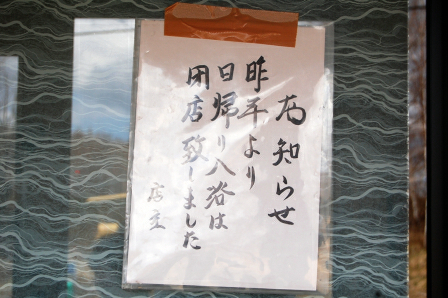 お知らせ
昨年より
日帰り入浴は
閉店致しました
店主